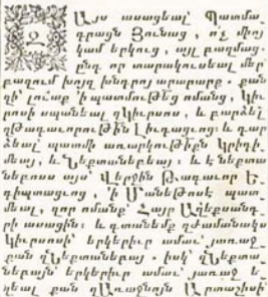 Այս ասացեալ՝ Պատմա
գրացն Յունաց, ո՛չ միոյ
կամ երկուց, այլ բազմաց.
ընդ որ տարակուսեալ մեր՝
բազում խոյզ խնդրոյ արարաք. քան
զի՝ լուաք ՚ի պատմութեց ոմանց, Կիւ
րոսի սպանեալ զԿիւրոս, և բարձեալ
զԹագաւորութիւն Լիւդացւոց։ և դար
ձեալ՝ պատմի առարկութիւքն Կրիւի
մեայ, և Նեքտանեբեայ։ և է Նեքտա
նեբոսս այս՝ Վերջին Թագաւոր Ե
գիպտացւոց, ՚ի Մանեթոսէ պատ
մեալ, զոր ոմանք՝ Հայր Աղեքսանդ
րի ասացին։ և գտանեմք զժամանակս
Կիւրոսի՝ երկերիւր ամաւ՝ յառաջ
քան զՆեքտանեբայն. իսկ՝ զՆեքտա
նեբայն՝ երկերիւր ամաւ՝ յառաջ և
եալ քան զԱռաջնոյն Արտաշիսի՝